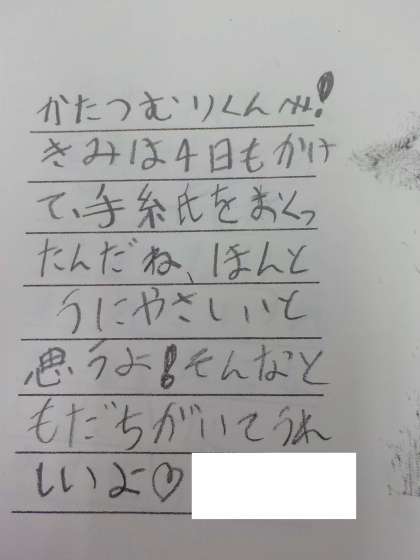 かたつむりくんへ!
きみは4日もかけ
て、手紙をおくっ
たんだね、ほんと
うにやさしいと
思うよ!そんなと
もだちがいてうれ
しいよ♡